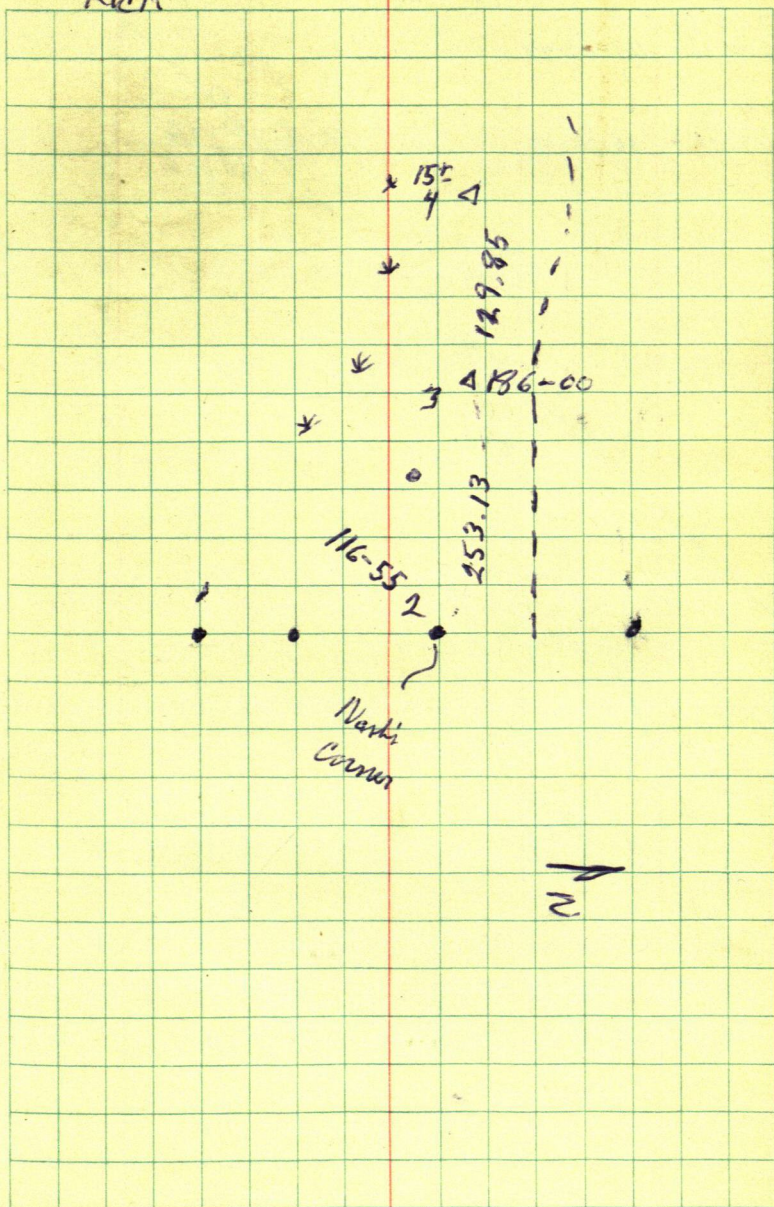 15±
4
129.85
3
186-00
253.13
116-55
2
Nash's
Corner
N